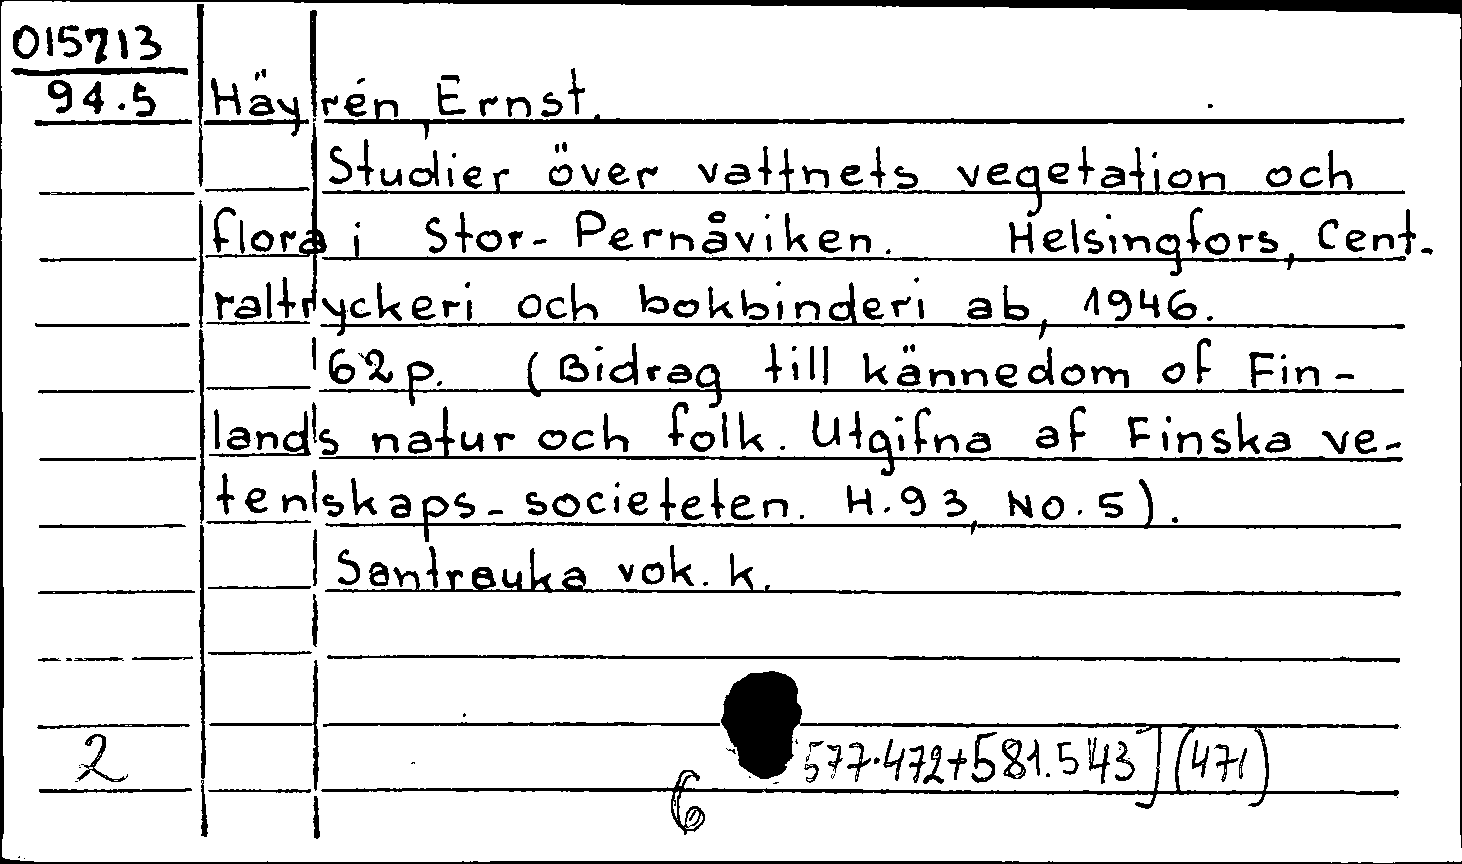 015713
94.5 Häyrén, Ernst.
Studier över vattnets vegetation och
flora i Stor-Pernåviken. Helsingfors, Cent-
raltryckeri och bokbinderi ab, 1946.
62 p. (Bidrag till kännedom of Fin-
lands natur och folk. Utgifna af Finska ve-
tenskaps-societeten. H.93, No.5).
Santrauka vok. k.
2 577.472+581.543](471)
6